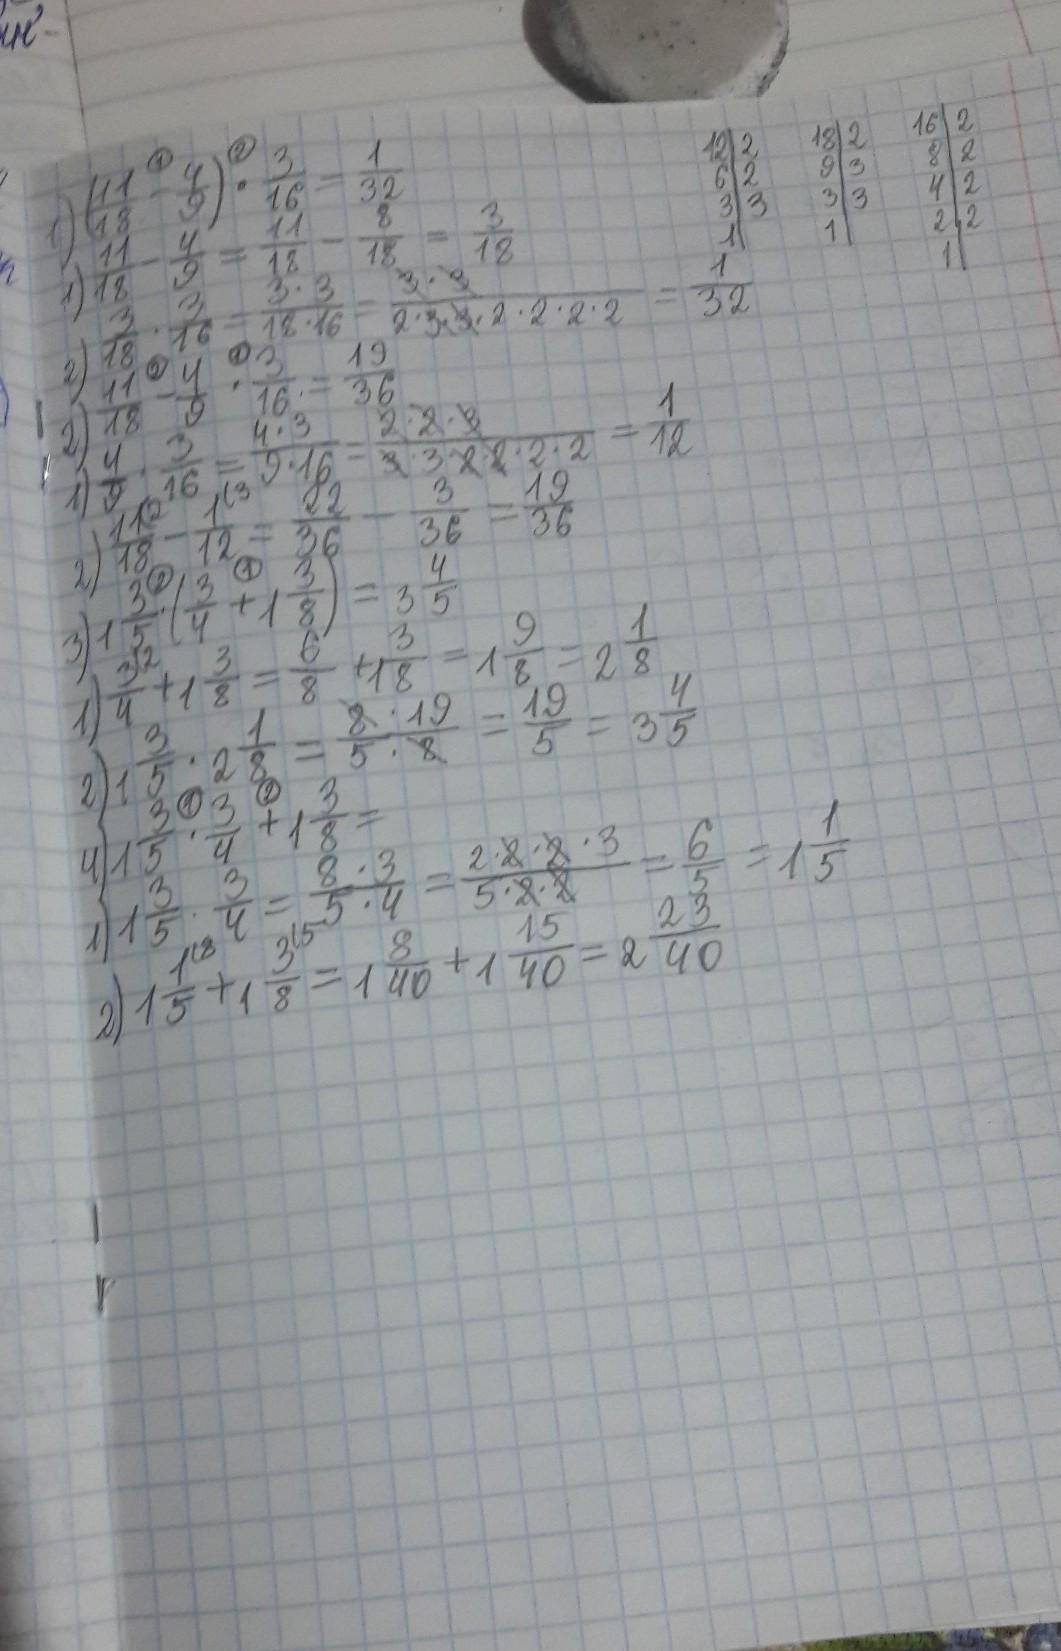 ин-
1) (11/18 - 4/9) · 3/16 = 1/32
① ②
1) 11/18 - 4/9 = 11/18 - 8/18 = 3/18
2) 3/18 · 3/16 = 3·3/18·16 = 3·3/2·3·3·2·2·2·2 = 1/32
2) 11/18 - 4/9 · 3/16 = 19/36
② ①
1) 4/9 · 3/16 = 4·3/9·16 = 2·2·3/3·3·2·2·2·2 = 1/12
2) 11(2/18 - 1(3/12 = 22/36 - 3/36 = 19/36
3) 1 3/5 · (3/4 + 1 3/8) = 3 4/5
② ①
1) 3(2/4 + 1 3/8 = 6/8 + 1 3/8 = 1 9/8 = 2 1/8
2) 1 3/5 · 2 1/8 = 8·19/5·8 = 19/5 = 3 4/5
4) 1 3/5 · 3/4 + 1 3/8 =
① ②
1) 1 3/5 · 3/4 = 8·3/5·4 = 2·2·2·3/5·2·2 = 6/5 = 1 1/5
2) 1 1(8/5 + 1 3(5/8 = 1 8/40 + 1 15/40 = 2 23/40
12|2
6|2
3|3
1|
18|2
9|3
3|3
1|
16|2
8|2
4|2
2|2
1|